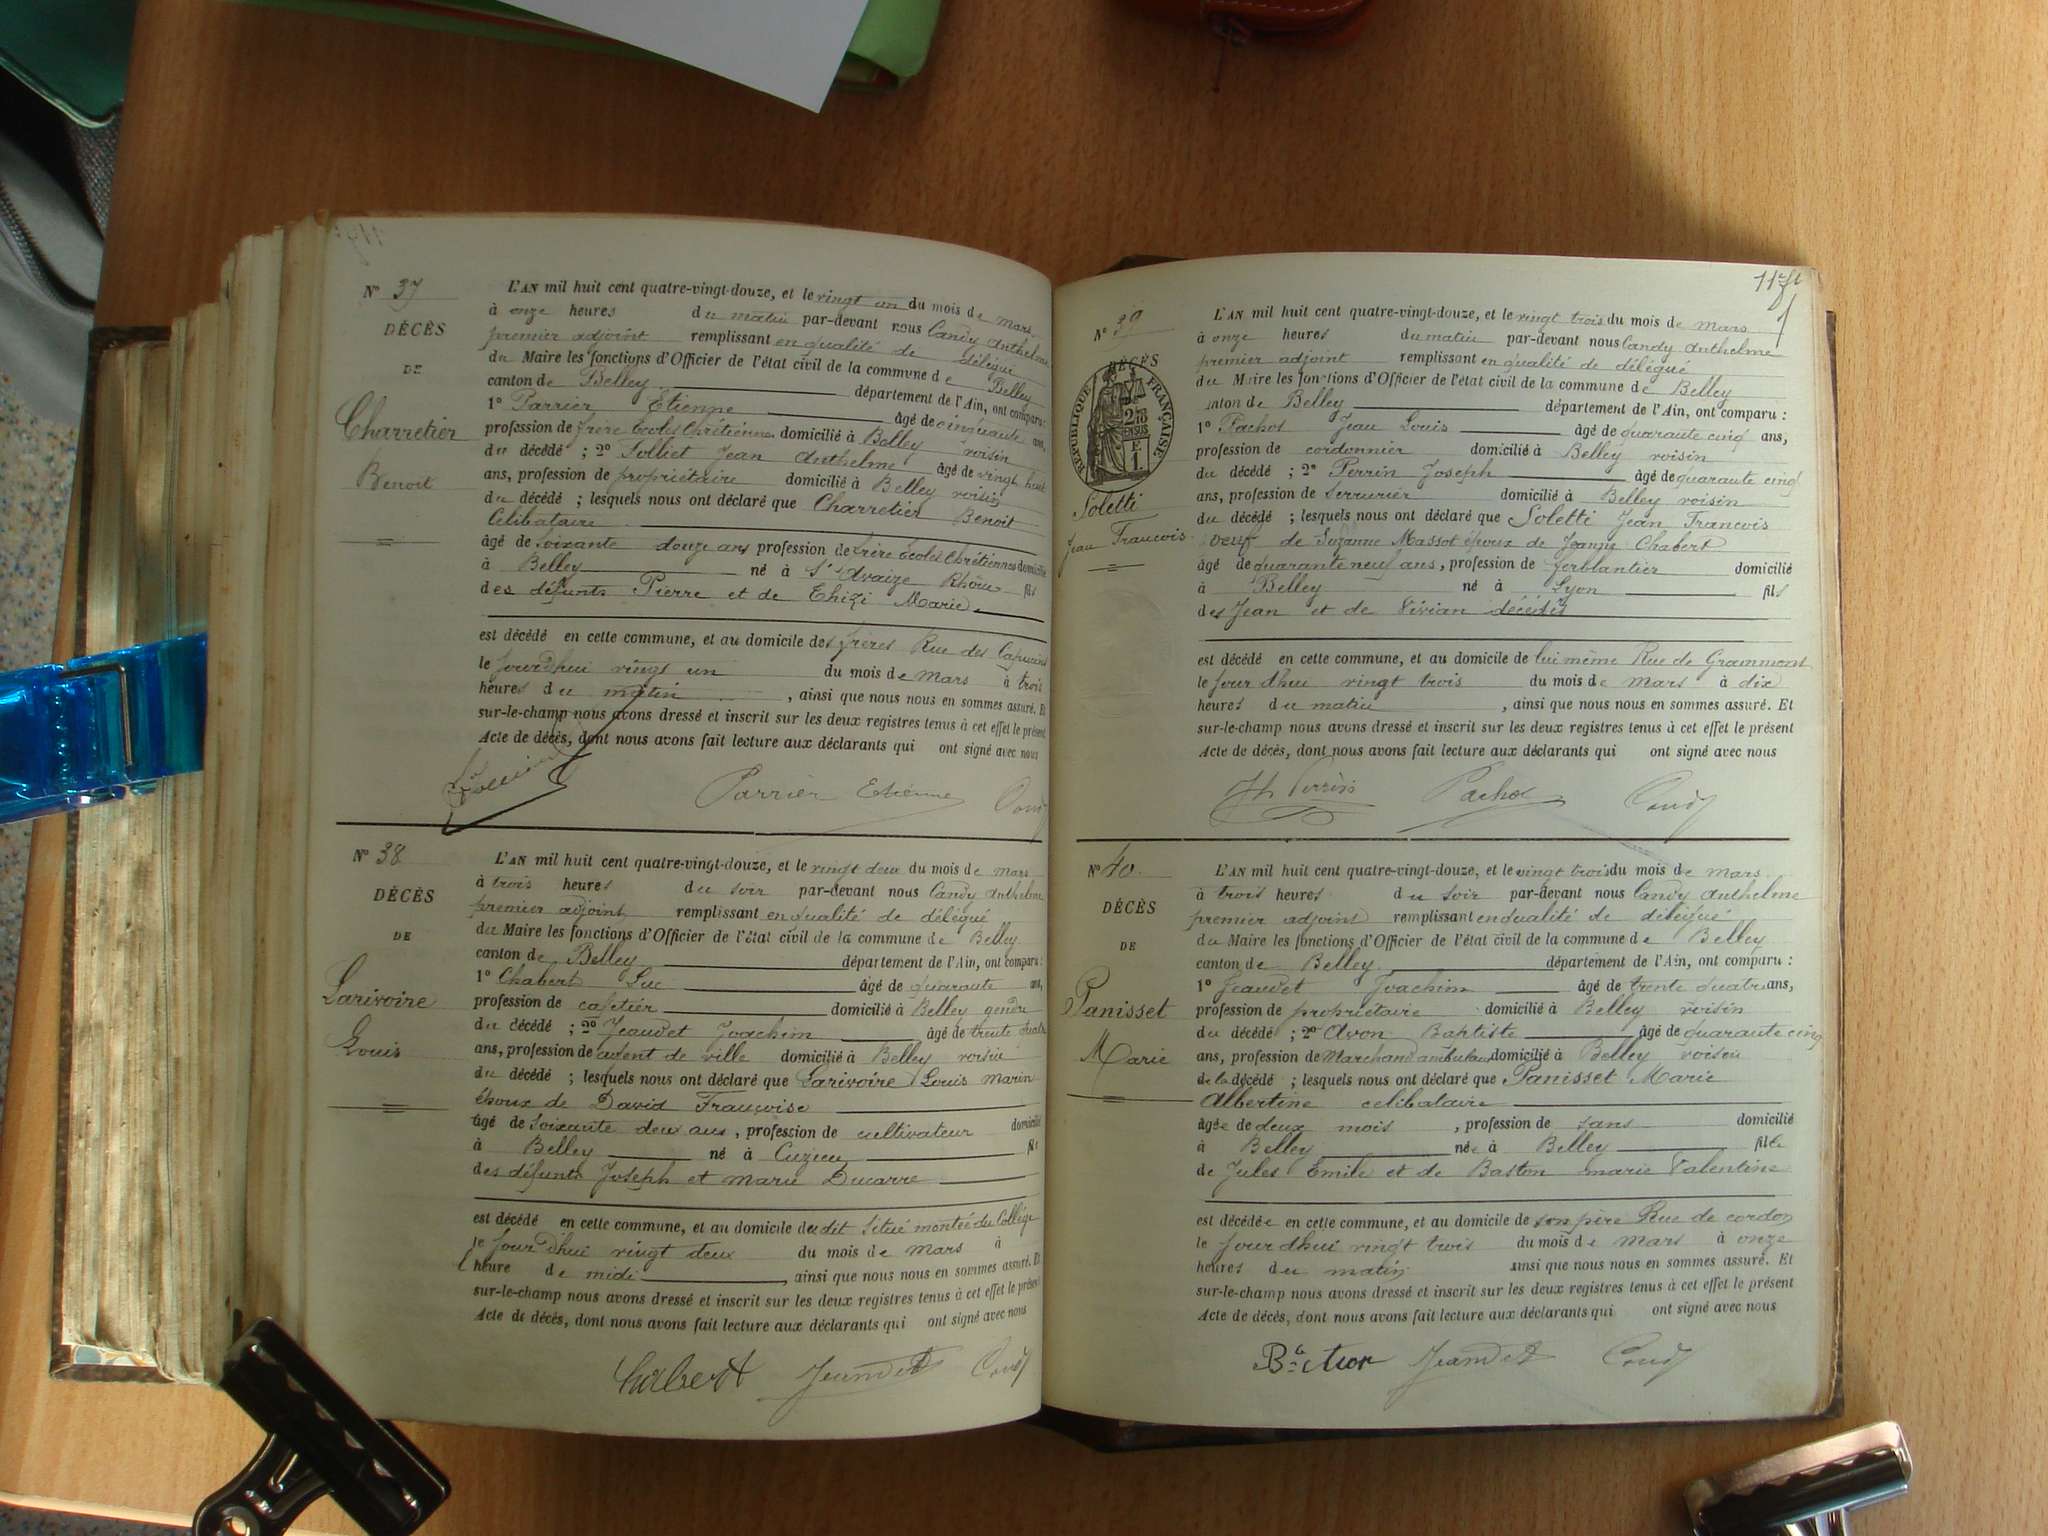 N° 37
DÉCÈS
DE
Charretier
Benoit
L'AN mil huit cent quatre-vingt-douze, et le vingt un du mois de mars
à onze heures du matin par-devant nous Candy Anthelme
premier adjoint remplissant en qualité de délégué
du Maire les fonctions d'Officier de l'état civil de la commune de Belley
canton de Belley département de l'Ain, ont comparu :
1° Parrier Etienne âgé de cinquante ans,
profession de frère Ecoles Chrétiennes domicilié à Belley voisin
du décédé ; 2° Jean Anthelme âgé de vingt huit
ans, profession de propriétaire domicilié à Belley voisin
du décédé ; lesquels nous ont déclaré que Charretier Benoit
Célibataire
âgé de soixante douze ans profession de frère Ecoles Chrétiennes domicilié
à Belley né à Rhône fils
des défunts Pierre et de Marie
est décédé en cette commune, et au domicile des frères Rue des Capucins
le Jourdhui vingt un du mois de mars à trois
heures du matin , ainsi que nous nous en sommes assuré. Et
sur-le-champ nous avons dressé et inscrit sur les deux registres tenus à cet effet le présent
Acte de décès, dont nous avons fait lecture aux déclarants qui ont signé avec nous
Parrier Etienne Candy
N° 38
DÉCÈS
DE
Larivoire
Louis
L'AN mil huit cent quatre-vingt-douze, et le vingt deux du mois de mars
à trois heures du soir par-devant nous Candy Anthelme
premier adjoint remplissant en qualité de délégué
du Maire les fonctions d'Officier de l'état civil de la commune de Belley
canton de Belley département de l'Ain, ont comparu :
1° Chabert Luc âgé de quarante ans,
profession de cafetier domicilié à Belley gendre
du décédé ; 2° Jeandet Joachim âgé de trente quatre
ans, profession de agent de ville domicilié à Belley voisin
du décédé ; lesquels nous ont déclaré que Larivoire Louis Marin
époux de David Françoise
âgé de soixante deux ans, profession de cultivateur domicilié
à Belley né à Cuzieu fils
des défunts Joseph et marie Ducarre
est décédé en cette commune, et au domicile dudit situé montée du Collége
le Jourd'hui vingt deux du mois de mars à
l heure de midi , ainsi que nous nous en sommes assuré. Et
sur-le-champ nous avons dressé et inscrit sur les deux registres tenus à cet effet le présent
Acte de décès, dont nous avons fait lecture aux déclarants qui ont signé avec nous
Chabert Jeandet Candy
N° 39
DÉCÈS
RÉPUBLIQUE FRANÇAISE
Soletti
Jean Francois
L'AN mil huit cent quatre-vingt-douze, et le vingt trois du mois de mars
à onze heures du matin par-devant nous Candy Anthelme
premier adjoint remplissant en qualité de délégué
du Maire les fonctions d'Officier de l'état civil de la commune de Belley
canton de Belley département de l'Ain, ont comparu :
1° Pachot Jean Louis âgé de quarante cinq ans,
profession de cordonnier domicilié à Belley voisin
du décédé ; 2° Perrin Joseph âgé de quarante cinq
ans, profession de serrurier domicilié à Belley voisin
du décédé ; lesquels nous ont déclaré que Soletti Jean Francois
veuf de Suzanne Massot époux de Jeanne Chabert
âgé de quarante neuf ans, profession de ferblantier domicilié
à Belley né à Lyon fils
des Jean et de Vivian décédés
est décédé en cette commune, et au domicile de lui même Rue de Grammont
le Jour dhui vingt trois du mois de mars à dix
heures du matin , ainsi que nous nous en sommes assuré. Et
sur-le-champ nous avons dressé et inscrit sur les deux registres tenus à cet effet le présent
Acte de décès, dont nous avons fait lecture aux déclarants qui ont signé avec nous
Perrin Pachot Candy
N° 40
DÉCÈS
DE
Panisset
Marie
L'AN mil huit cent quatre-vingt-douze, et le vingt trois du mois de mars
à trois heures du soir par-devant nous Candy Anthelme
premier adjoint remplissant en qualité de délégué
du Maire les fonctions d'Officier de l'état civil de la commune de Belley
canton de Belley département de l'Ain, ont comparu :
1° Jeandet Joachim âgé de trente quatre ans,
profession de propriétaire domicilié à Belley voisin
du décédé ; 2° Avon Baptiste âgé de quarante cinq
ans, profession de Marchand ambulant domicilié à Belley voisin
de la décédé ; lesquels nous ont déclaré que Panisset Marie
Albertine celibataire
âgée de deux mois , profession de sans domicilié
à Belley née à Belley fille
de Jules Emile et de Baston marie Valentine
est décédée en cette commune, et au domicile de son père Rue de cordon
le Jour dhui vingt trois du mois de mars à onze
heures du matin ainsi que nous nous en sommes assuré. Et
sur-le-champ nous avons dressé et inscrit sur les deux registres tenus à cet effet le présent
Acte de décès, dont nous avons fait lecture aux déclarants qui ont signé avec nous
Jeandet Candy